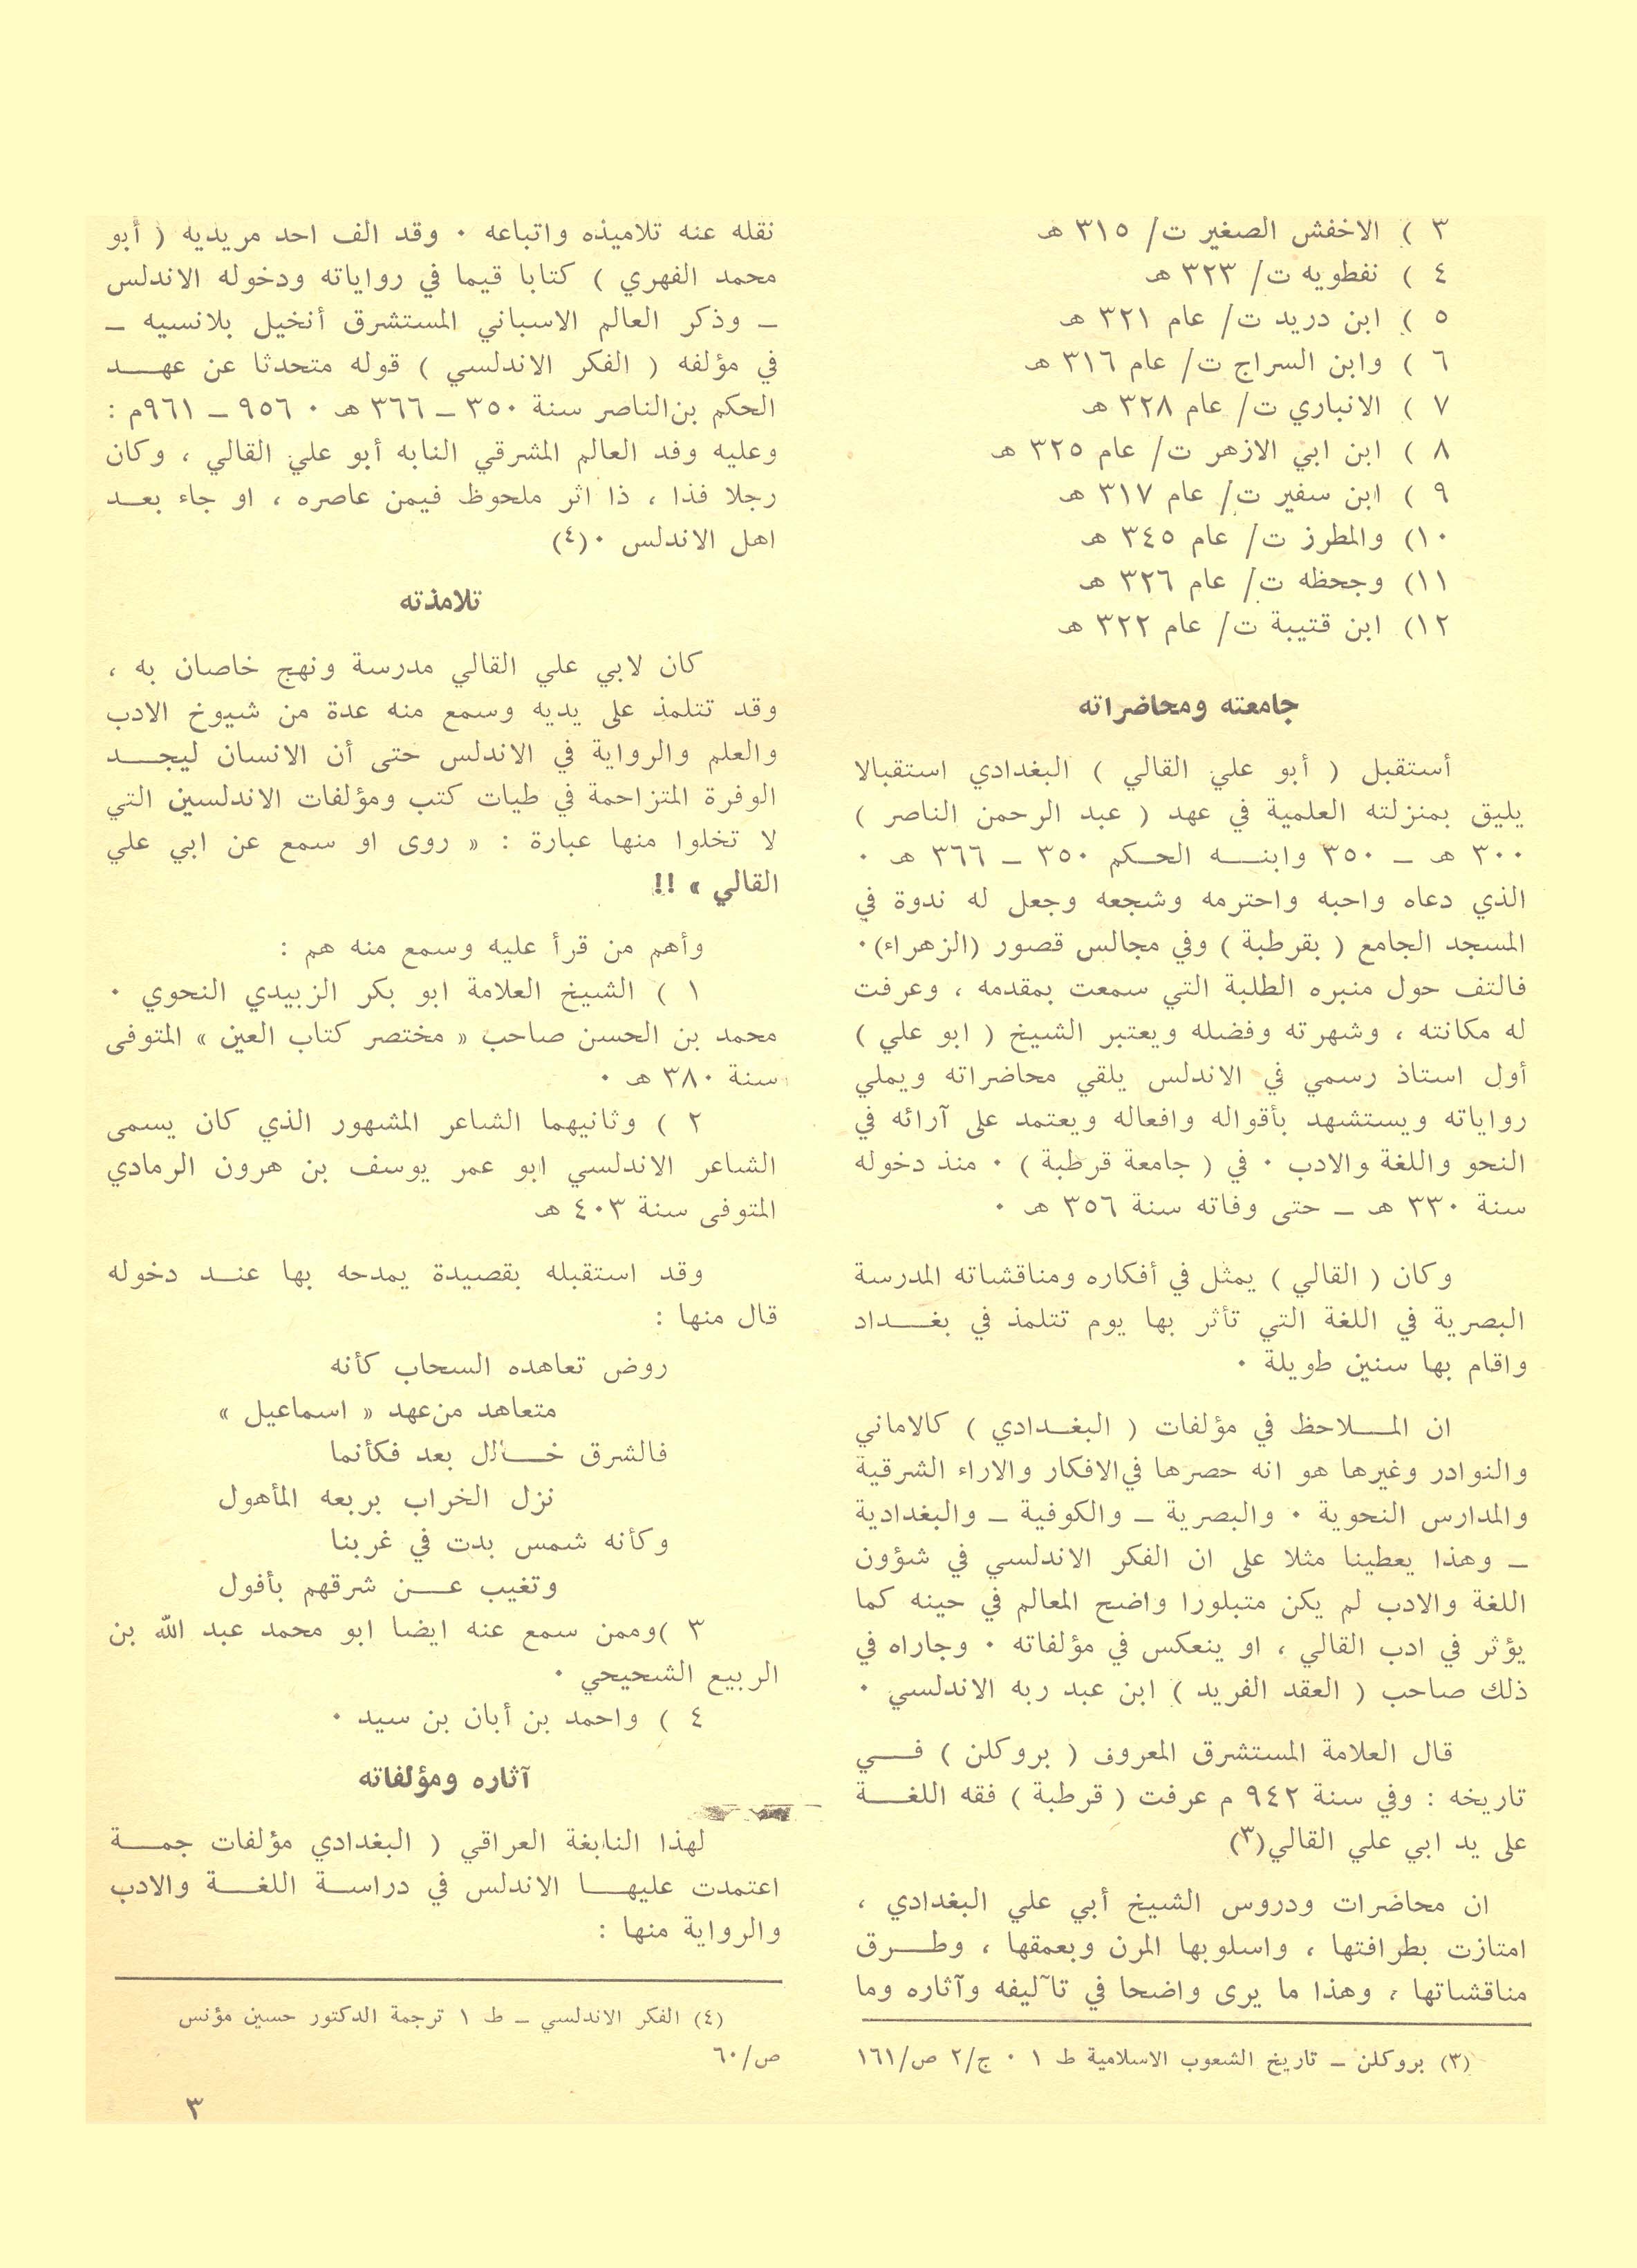 ٣ ) الاخفش الصغير ت/ ٣١٥ هـ
٤ ) نفطويه ت/ ٣٢٣ هـ
٥ ) ابن دريد ت/ عام ٣٢١ هـ
٦ ) وابن السراج ت/ عام ٣١٦ هـ
٧ ) الانباري ت/ عام ٣٢٨ هـ
٨ ) ابن ابي الازهر ت/ عام ٣٢٥ هـ
٩ ) ابن سفير ت/ عام ٣١٧ هـ
١٠) والمطرز ت/ عام ٣٤٥ هـ
١١) وجحظه ت/ عام ٣٢٦ هـ
١٢) ابن قتيبة ت/ عام ٣٢٢ هـ
جامعته ومحاضراته
أستقبل ( أبو علي القالي ) البغدادي استقبالا
يليق بمنزلته العلمية في عهد ( عبد الرحمن الناصر )
٣٠٠ هـ ــ ٣٥٠ وابنـــه الحـكم ٣٥٠ ــ ٣٦٦ هـ ٠
الذي دعاه واحبه واحترمه وشجعه وجعل له ندوة في
المسجد الجامع ( بقرطبة ) وفي مجالس قصور (الزهراء)٠
فالتف حول منبره الطلبة التي سمعت بمقدمه ، وعرفت
له مكانته ، وشهرته وفضله ويعتبر الشيخ ( ابو علي )
أول استاذ رسمي في الاندلس يلقي محاضراته ويملي
رواياته ويستشهد بأقواله وافعاله ويعتمد على آرائه في
النحو واللغة والادب ٠ في ( جامعة قرطبة ) ٠ منذ دخوله
سنة ٣٣٠ هـ ــ حتى وفاته سنة ٣٥٦ هـ ٠
وكان ( القالي ) يمثل في أفكاره ومناقشاته المدرسة
البصرية في اللغة التي تأثر بها يوم تتلمذ في بغـــداد
واقام بها سنين طويلة ٠
ان المـــلاحظ في مؤلفات ( البغـدادي ) كالاماني
والنوادر وغيرها هو انه حصرها في الافكار والاراء الشرقية
والمدارس النحوية ٠ والبصرية ــ والكوفية ــ والبغدادية
ــ وهذا يعطينا مثلا على ان الفكر الاندلسي في شؤون
اللغة والادب لم يكن متبلورا واضح المعالم في حينه كما
يؤثر في ادب القالي ، او ينعكس في مؤلفاته ٠ وجاراه في
ذلك صاحب ( العقد الفريد ) ابن عبد ربه الاندلسي ٠
قال العلامة المستشرق المعروف ( بروكلن ) فـــي
تاريخه : وفي سنة ٩٤٢ م عرفت ( قرطبة ) فقه اللغـــة
على يد ابي علي القالي(٣)
ان محاضرات ودروس الشيخ أبي علي البغدادي ،
امتازت بطرافتها ، واسلوبها المرن وبعمقها ، وطـــرق
مناقشاتها ، وهذا ما يرى واضحا في تآليفه وآثاره وما
(٣) بروكلن ــ تاريخ الشعوب الاسلامية ط ١ ٠ ج/٢ ص/١٦١
نقله عنه تلاميذه واتباعه ٠ وقد الف احد مريديه ( أبو
محمد الفهري ) كتابا قيما في رواياته ودخوله الاندلس
ــ وذكر العالم الاسباني المستشرق أنخيل بلانسيه ــ
في مؤلفه ( الفكر الاندلسي ) قوله متحدثا عن عهـــد
الحكم بن الناصر سنة ٣٥٠ ــ ٣٦٦ هـ ٠ ٩٥٦ ــ ٩٦١م :
وعليه وفد العالم المشرقي النابه أبو علي القالي ، وكان
رجلا فذا ، ذا اثر ملحوظ فيمن عاصره ، او جاء بعـد
اهل الاندلس ٠(٤)
تلامذته
كان لابي علي القالي مدرسة ونهج خاصان به ،
وقد تتلمذ على يديه وسمع منه عدة من شيوخ الادب
والعلم والرواية في الاندلس حتى أن الانسان ليجـــد
الوفرة المتزاحمة في طيات كتب ومؤلفات الاندلسين التي
لا تخلوا منها عبارة : « روى او سمع عن ابي علي
القالي » !!
وأهم من قرأ عليه وسمع منه هم :
١ ) الشيخ العلامة ابو بكر الزبيدي النحوي ٠
محمد بن الحسن صاحب « مختصر كتاب العين » المتوفى
سنة ٣٨٠ هـ ٠
٢ ) وثانيهما الشاعر المشهور الذي كان يسمى
الشاعر الاندلسي ابو عمر يوسف بن هرون الرمادي
المتوفى سنة ٤٠٣ هـ
وقد استقبله بقصيدة يمدحه بها عنـد دخوله
قال منها :
روض تعاهده السحاب كأنه
متعاهد من عهد « اسماعيل »
فالشرق خـــال بعد فكأنما
نزل الخراب بربعه المأهول
وكأنه شمس بدت في غربنا
وتغيب عـــن شرقهم بأفول
٣ )وممن سمع عنه ايضا ابو محمد عبد الله بن
الربيع الشحيحي ٠
٤ ) واحمد بن أبان بن سيد ٠
آثاره ومؤلفاته
لهذا النابغة العراقي ( البغدادي مؤلفات جمـــة
اعتمدت عليهـــا الاندلس في دراسـة اللغـــة والادب
والرواية منها :
(٤) الفكر الاندلسي ــ ط ١ ترجمة الدكتور حسين مؤنس
ص/٦٠
٣